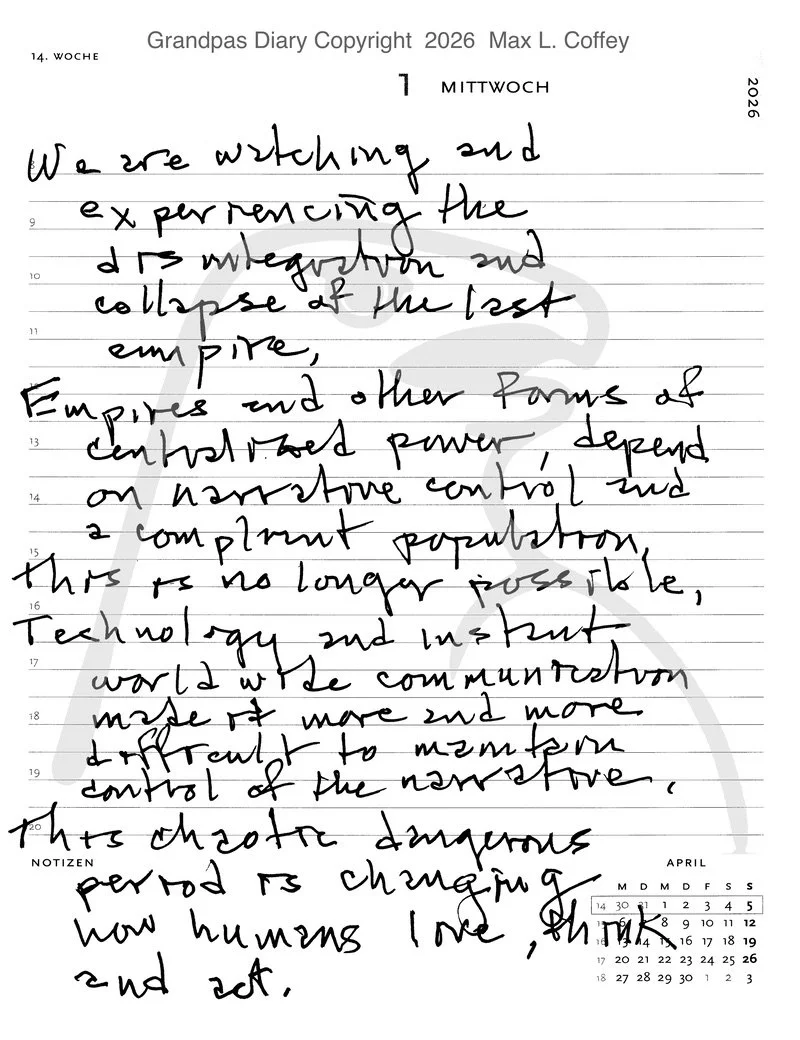 Grandpas Diary Copyright 2026 Max L. Coffey
14. WOCHE
1 MITTWOCH
2026
We are watching and
experiencing the
disintegration and
collapse of the last
empire,
Empires and other forms of
centralized power, depend
on narrative control and
a compliant population,
this is no longer possible,
Technology and instant
world wide communication
made it more and more
difficult to maintain
control of the narrative.
This chaotic dangerous
period is changing
how humans love, think
and act.
9
10
11
13
14
15
16
17
18
19
20
NOTIZEN
APRIL
M D M D F S S
14 30 31 1 2 3 4 5
6 7 8 9 10 11 12
16 13 14 15 16 17 18 19
17 20 21 22 23 24 25 26
18 27 28 29 30 1 2 3